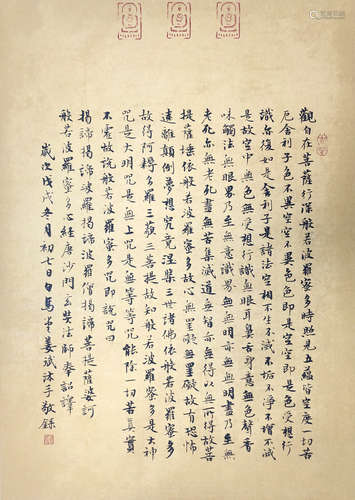 觀自在菩薩行深般若波羅蜜多時照見五蘊皆空度一切苦
厄舍利子色不異空空不異色色即是空空即是色受想行
識亦復如是舍利子是諸法空相不生不滅不垢不淨不增不減
是故空中無色無受想行識無眼耳鼻舌身意無色聲香
味觸法無眼界乃至無意識界無無明亦無無明盡乃至無
老死亦無老死盡無苦集滅道無智亦無得以無所得故菩
提薩埵依般若波羅蜜多故心無罣礙無罣礙故無有恐怖
遠離顛倒夢想究竟涅槃三世諸佛依般若波羅蜜多
故得阿耨多羅三藐三菩提故知般若波羅蜜多是大神
咒是大明咒是無上咒是無等等咒能除一切苦真實
不虛故說般若波羅蜜多咒即說咒曰
揭諦揭諦波羅揭諦波羅僧揭諦菩提薩婆訶
般若波羅蜜多心經唐沙門玄奘法師奉詔譯
歲次戊戌冬月初七日白馬寺姜斌沐手敬錄